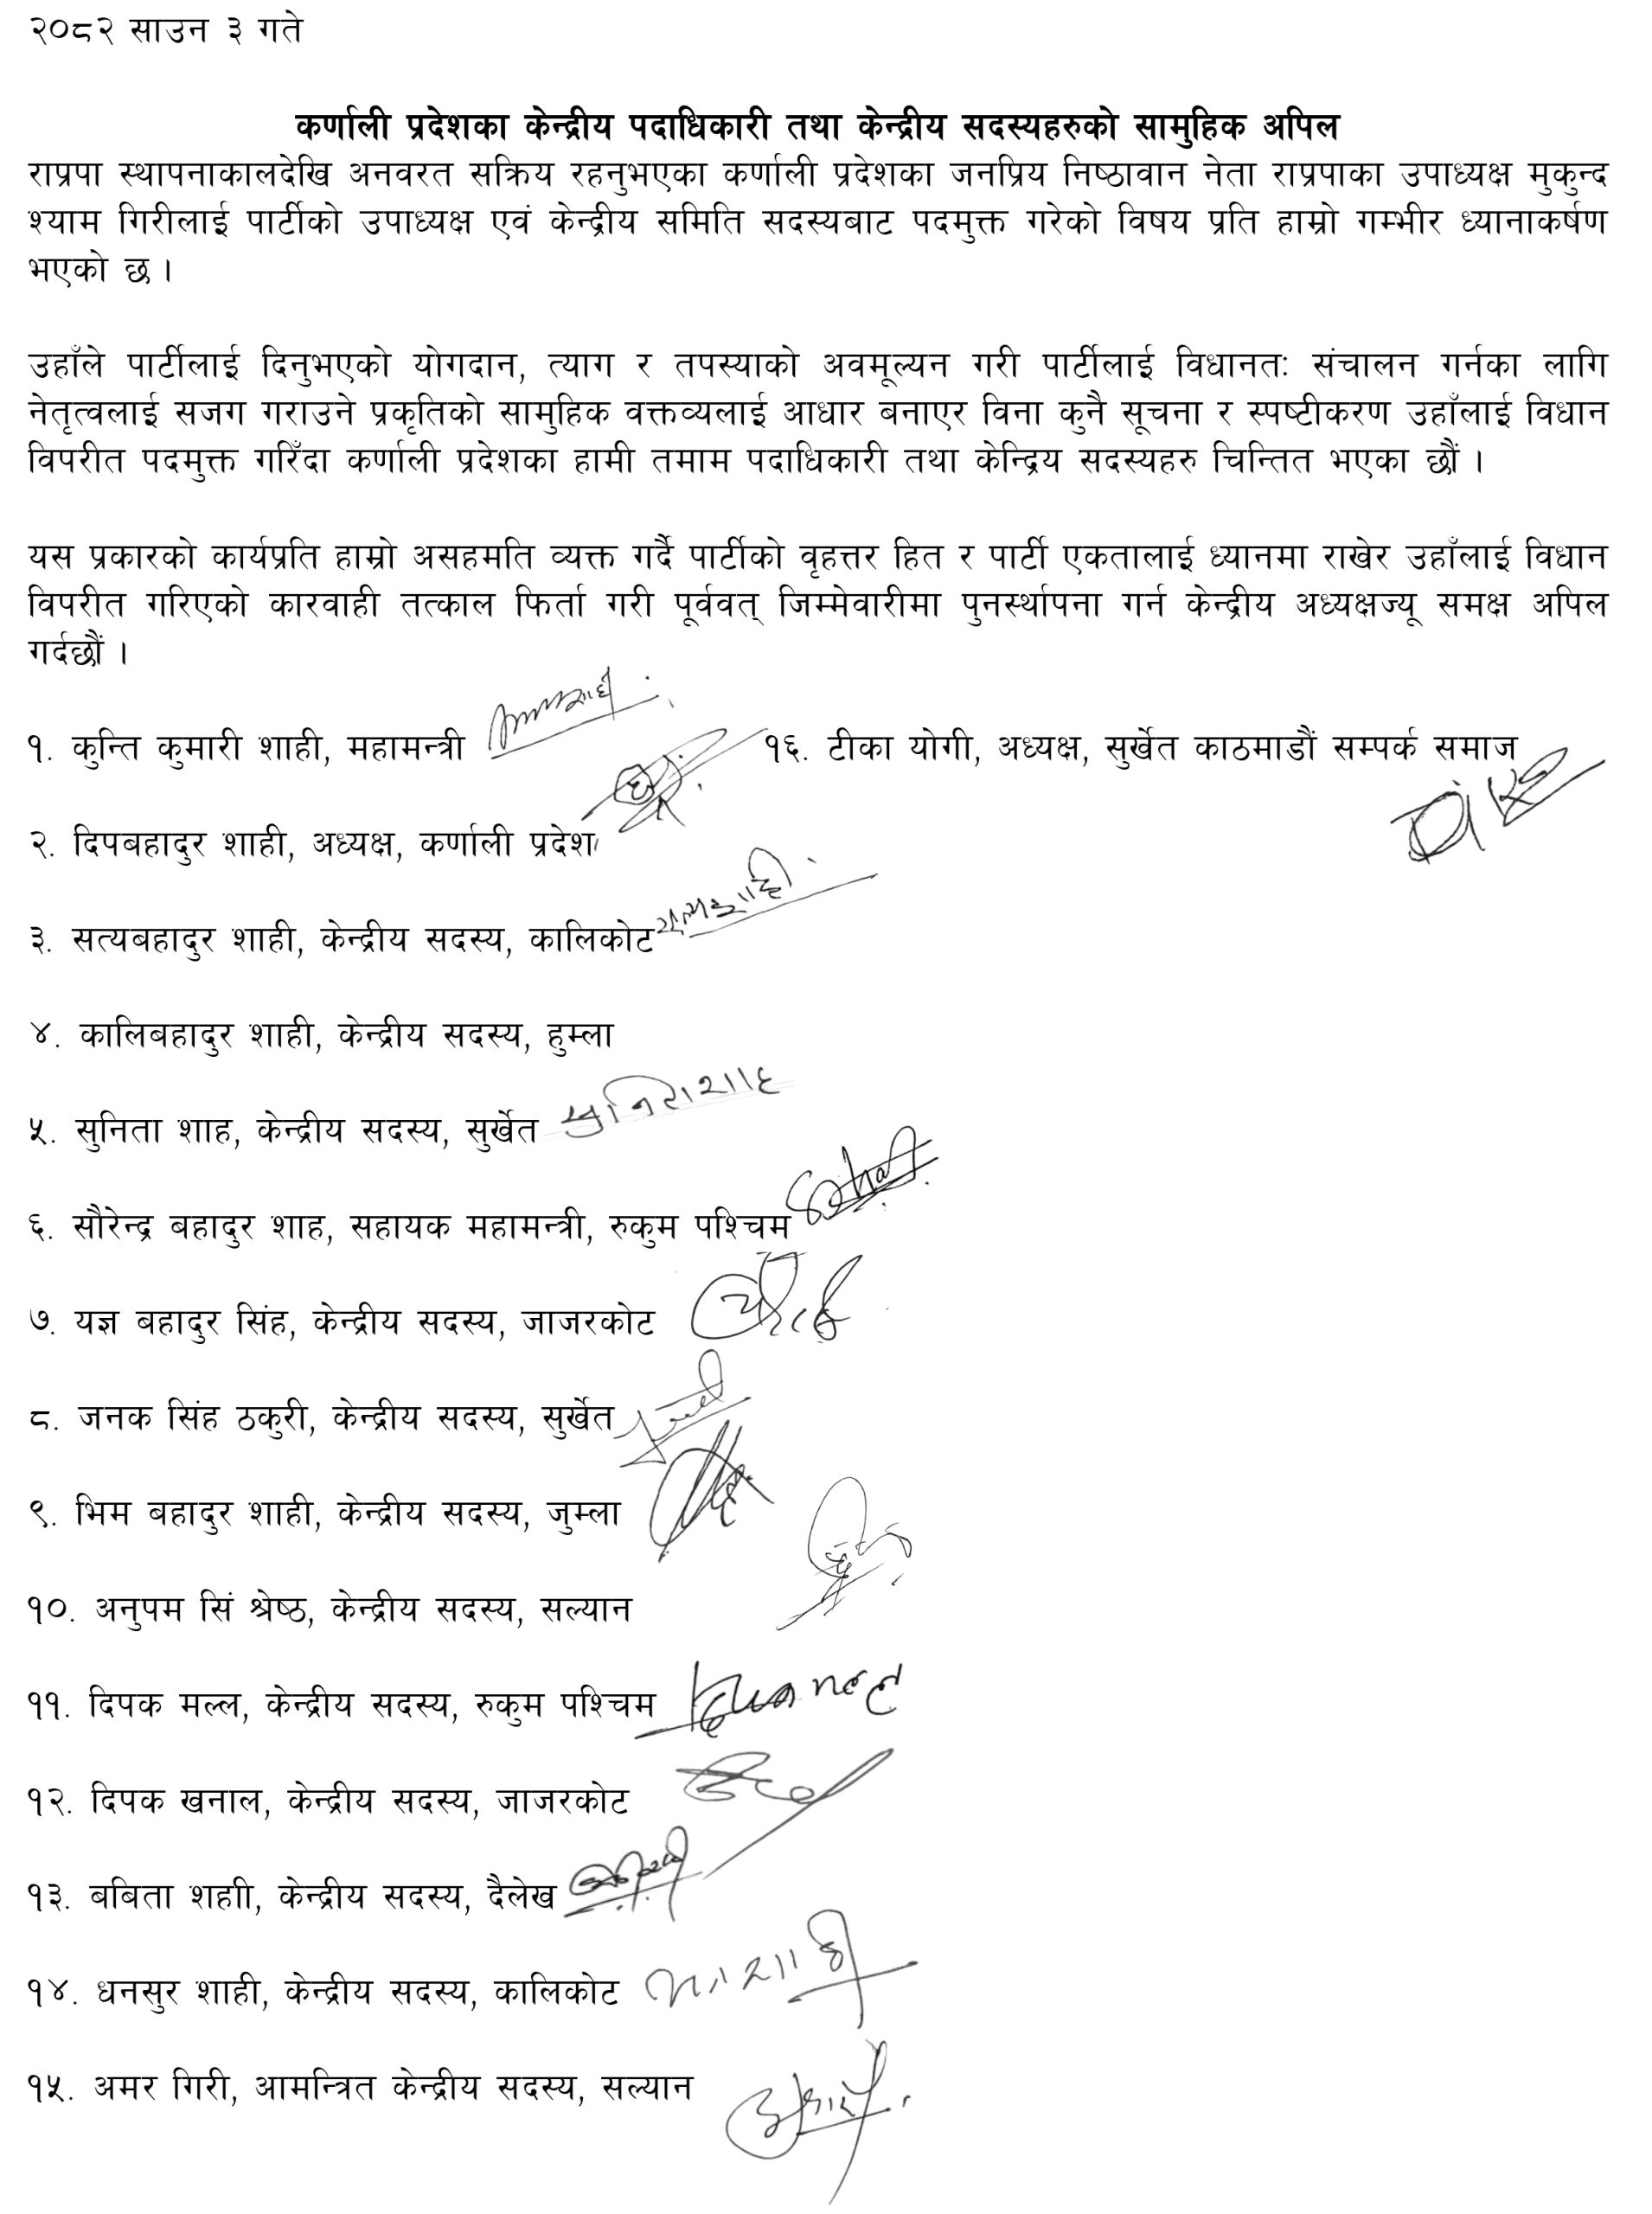 २०८२ साउन ३ गते
कर्णाली प्रदेशका केन्द्रीय पदाधिकारी तथा केन्द्रीय सदस्यहरुको सामुहिक अपिल
राप्रपा स्थापनाकालदेखि अनवरत सक्रिय रहनुभएका कर्णाली प्रदेशका जनप्रिय निष्ठावान नेता राप्रपाका उपाध्यक्ष मुकुन्द
श्याम गिरीलाई पार्टीको उपाध्यक्ष एवं केन्द्रीय समिति सदस्यबाट पदमुक्त गरेको विषय प्रति हाम्रो गम्भीर ध्यानाकर्षण
भएको छ ।
उहाँले पार्टीलाई दिनुभएको योगदान, त्याग र तपस्याको अवमूल्यन गरी पार्टीलाई विधानतः संचालन गर्नका लागि
नेतृत्वलाई सजग गराउने प्रकृतिको सामुहिक वक्तव्यलाई आधार बनाएर विना कुनै सूचना र स्पष्टीकरण उहाँलाई विधान
विपरीत पदमुक्त गरिँदा कर्णाली प्रदेशका हामी तमाम पदाधिकारी तथा केन्द्रिय सदस्यहरु चिन्तित भएका छौं ।
यस प्रकारको कार्यप्रति हाम्रो असहमति व्यक्त गर्दै पार्टीको वृहत्तर हित र पार्टी एकतालाई ध्यानमा राखेर उहाँलाई विधान
विपरीत गरिएको कारवाही तत्काल फिर्ता गरी पूर्ववत् जिम्मेवारीमा पुनर्स्थापना गर्न केन्द्रीय अध्यक्षज्यू समक्ष अपिल
गर्दछौं ।
१. कुन्ति कुमारी शाही, महामन्त्री
१६. टीका योगी, अध्यक्ष, सुर्खेत काठमाडौं सम्पर्क समाज
२. दिपबहादुर शाही, अध्यक्ष, कर्णाली प्रदेश
३. सत्यबहादुर शाही, केन्द्रीय सदस्य, कालिकोट
४. कालिबहादुर शाही, केन्द्रीय सदस्य, हुम्ला
५. सुनिता शाह, केन्द्रीय सदस्य, सुर्खेत
६. सौरेन्द्र बहादुर शाह, सहायक महामन्त्री, रुकुम पश्चिम
७. यज्ञ बहादुर सिंह, केन्द्रीय सदस्य, जाजरकोट
८. जनक सिंह ठकुरी, केन्द्रीय सदस्य, सुर्खेत
९. भिम बहादुर शाही, केन्द्रीय सदस्य, जुम्ला
१०. अनुपम सिं श्रेष्ठ, केन्द्रीय सदस्य, सल्यान
११. दिपक मल्ल, केन्द्रीय सदस्य, रुकुम पश्चिम
१२. दिपक खनाल, केन्द्रीय सदस्य, जाजरकोट
१३. बबिता शहाी, केन्द्रीय सदस्य, दैलेख
१४. धनसुर शाही, केन्द्रीय सदस्य, कालिकोट
१५. अमर गिरी, आमन्त्रित केन्द्रीय सदस्य, सल्यान